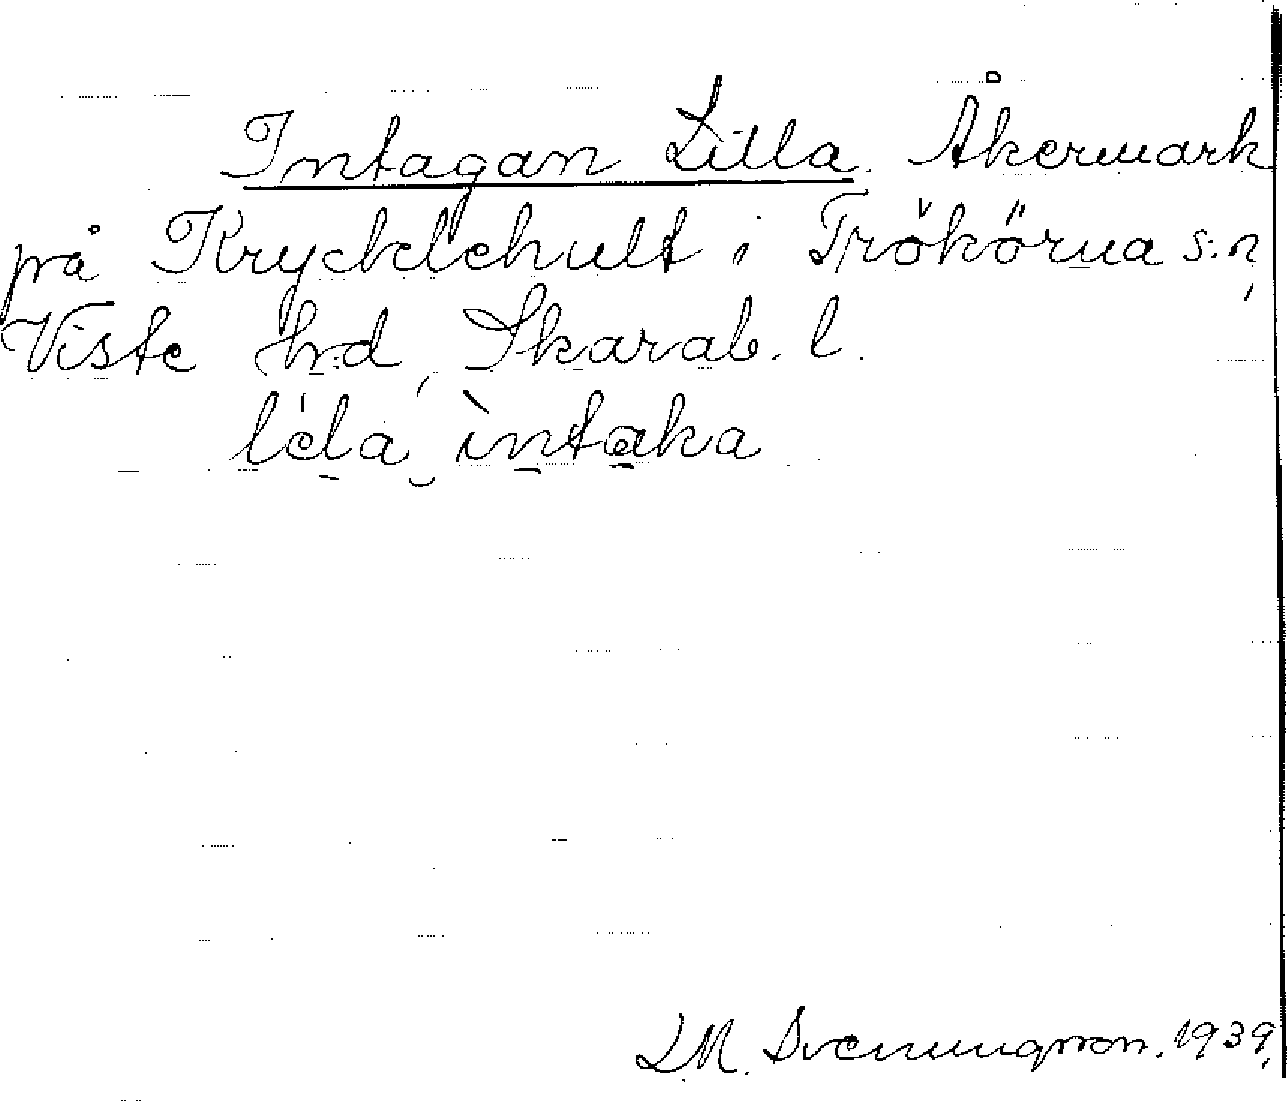 Intagan Lilla. Åkermark
på Krycklehult i Trökörna s:n,
Viste hd, Skarab. l.
lela intaka
L.M. Svenungsson. 1939.